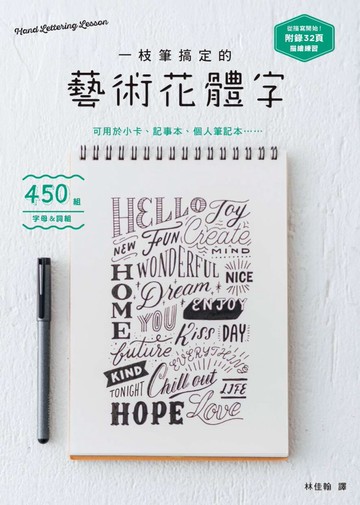 Hand Lettering Lesson
從描寫開始！
附錄32頁
描繪練習
一枝筆搞定的
藝術花體字
可用於小卡、記事本、個人筆記本……
450組
字母&詞組
HELLO Joy
NEW FUN Create
MIND
HOME WONDERFUL
NICE
Dream
ENJOY
YOU
Kiss DAY
future
EVERYTHING
KIND
TONIGHT Chill out LIFE
HOPE Love
林佳翰 譯